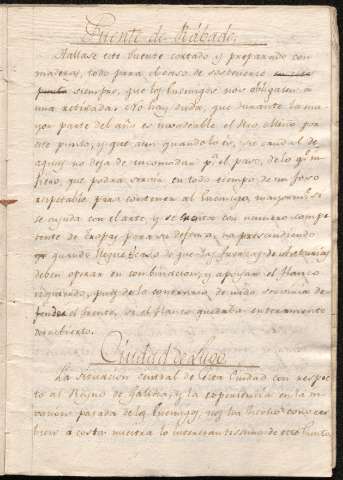 Puente de Rábade.
Hallase este Puente cortado y preparado con
maderas, todo para el caso de sostenerlo en este
punto siempre, que los Enemigos nos obligasen á
una retirada. No hay duda, que durante la ma-
yor parte del año es invadeable el Rio Miño por
este punto, y que aun quando lo es, su caudal de
aguas no deja de incomodar pª el paso, de lo qe in-
fiero, que podra servir en todo tiempo de un foso
respetable para contener al Enemigo, mayormte si
se ayuda con el arte y se cuenta con numero compe-
tente de tropas para su defensa, no prescindiendo
qe quando llegue el caso de que las fuerzas de Asturias
deben operar en combinacion, y apoyar el flanco
izquierdo, pues de lo contrario de nada serviria de-
fender el frente, si el flanco quedaba enteramente
descubierto.
Ciudad de Lugo.
La situacion central de esta Ciudad con respec-
to al Reyno de Galicia, y la experiencia en la in-
vacion pasada de los Enemigos, nos han hecho conocer
bien á costa nuestra lo interesantissimo de este punto,